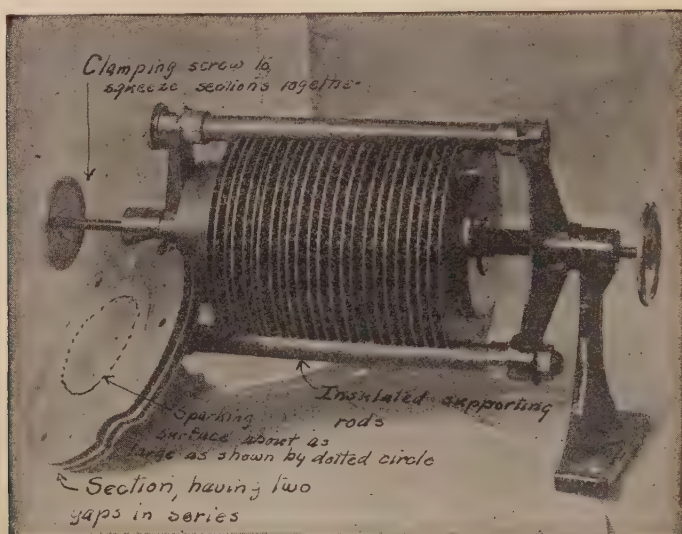 Clamping screw to
squeeze sections together
Insulated supporting
rods
Sparking
surface about as
large as shown by dotted circle
Section, having two
gaps in series